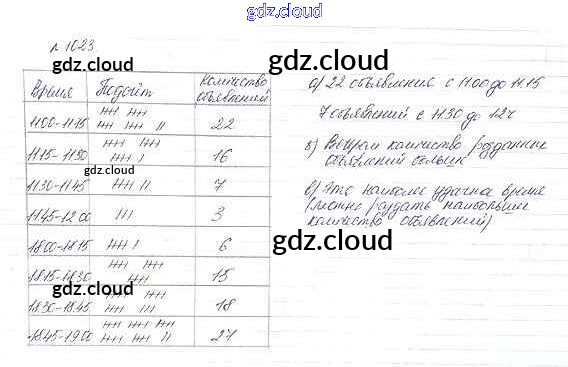 gdz.cloud
№ 1023.
Время Подсчёт Количество объявлений
11.00-11.15 22
11.15-11.30 16
11.30-11.45 7
11.45-12.00 3
18.00-18.15 6
18.15-18.30 15
18.30-18.45 18
18.45-19.00 27
а) 22 объявления с 11.00 до 11.15
7 объявлений с 11.30 до
б) Вечером количество розданных
объявлений больше
в) Это наиболее удачное время
(можно раздать наибольшее
количество объявлений)
gdz.cloud
gdz.cloud
gdz.cloud
gdz.cloud
gdz.cloud
gdz.cloud
gdz.cloud